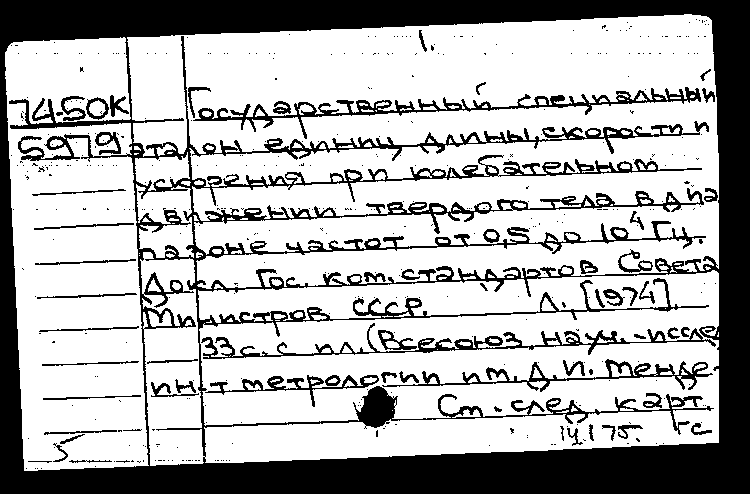 1.
74-50К Государственный специальный
5979 эталон единиц длины, скорости и
ускорения при колебательном
движении твердого тела в диа
пазоне частот от 0,5 до 10⁴ Гц.
Докл. Гос. ком. стандартов Совета
Министров СССР. Л., [1974].
33 с. с ил. (Всесоюз. науч.-исслед
ин-т метрологии им. Д.И. Менде-
См. след. карт.
5 14.I 75. гс